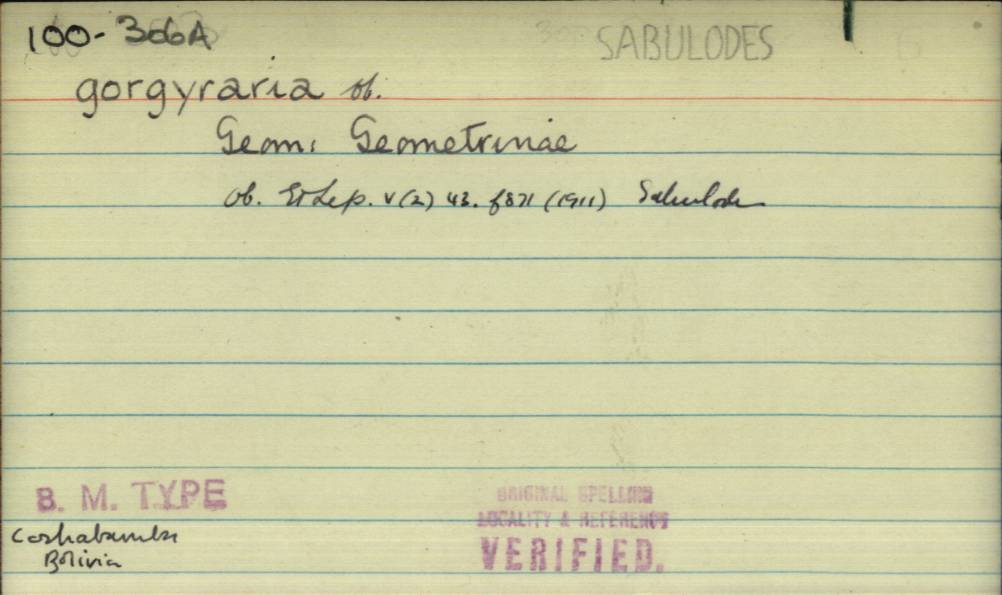 100-306A SABULODES
gorgyraria ob.
Geom. Geometrinae
ob. Et Lep. v(2) 43. f871 (1911) Sabulodes
B. M. TYPE
Cochabamba
Bolivia
ORIGINAL SPELLING
LOCALITY & REFERENCE
VERIFIED.